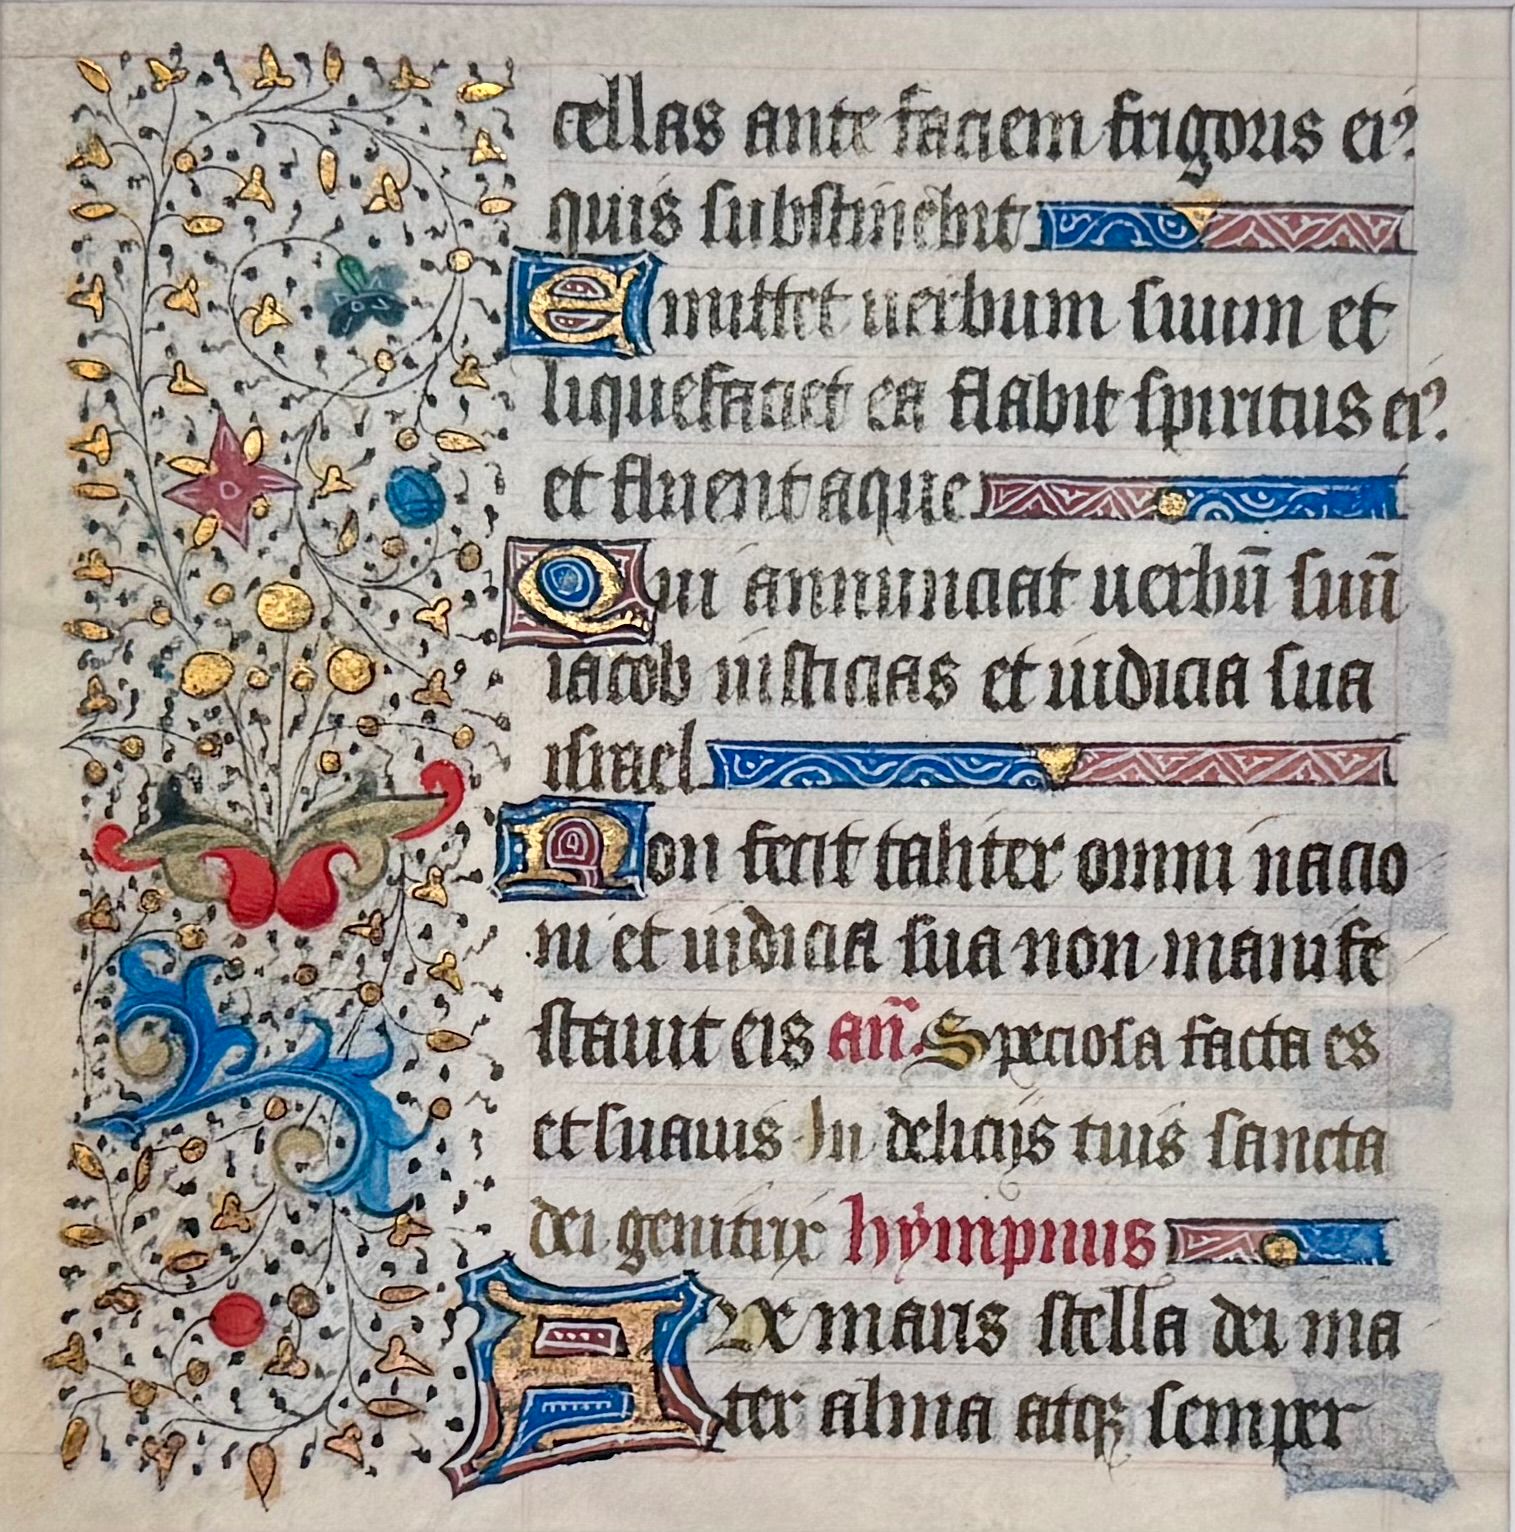 cellas ante faciem frigoris eiꝰ
quis substinebit
Emittet uerbum suum et
liquefaciet ea flabit spiritus eiꝰ
et fluent aque
Qui annunciat uerbū suū
iacob iusticias et iudicia sua
israel
Non fecit taliter omni nacio
ni et iudicia sua non manife
stauit eis an̄. Speciosa facta es
et suauis In delicijs tuis sancta
dei genitrix hympnus
Aue maris stella dei ma
ter alma atqꝫ semper